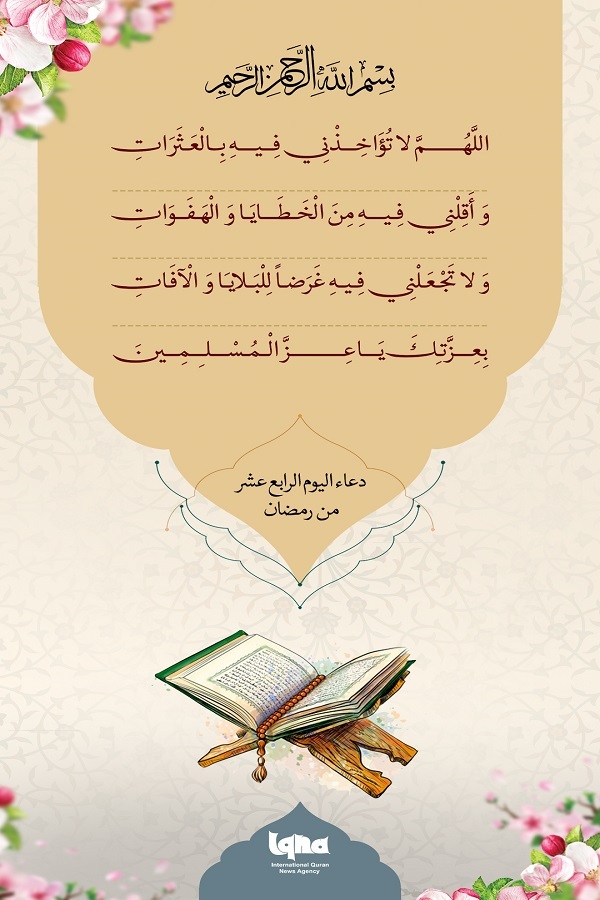 بِسْمِ اللَّهِ الرَّحْمَنِ الرَّحِيمِ
اللَّهُمَّ لا تُؤَاخِذْنِي فِيهِ بِالْعَثَرَاتِ
وَ أَقِلْنِي فِيهِ مِنَ الْخَطَايَا وَ الْهَفَوَاتِ
وَ لا تَجْعَلْنِي فِيهِ غَرَضاً لِلْبَلايَا وَ الْآفَاتِ
بِعِزَّتِكَ يَا عِزَّ الْمُسْلِمِينَ
دعاء اليوم الرابع عشر
من رمضان
iqna
International Quran
News Agency